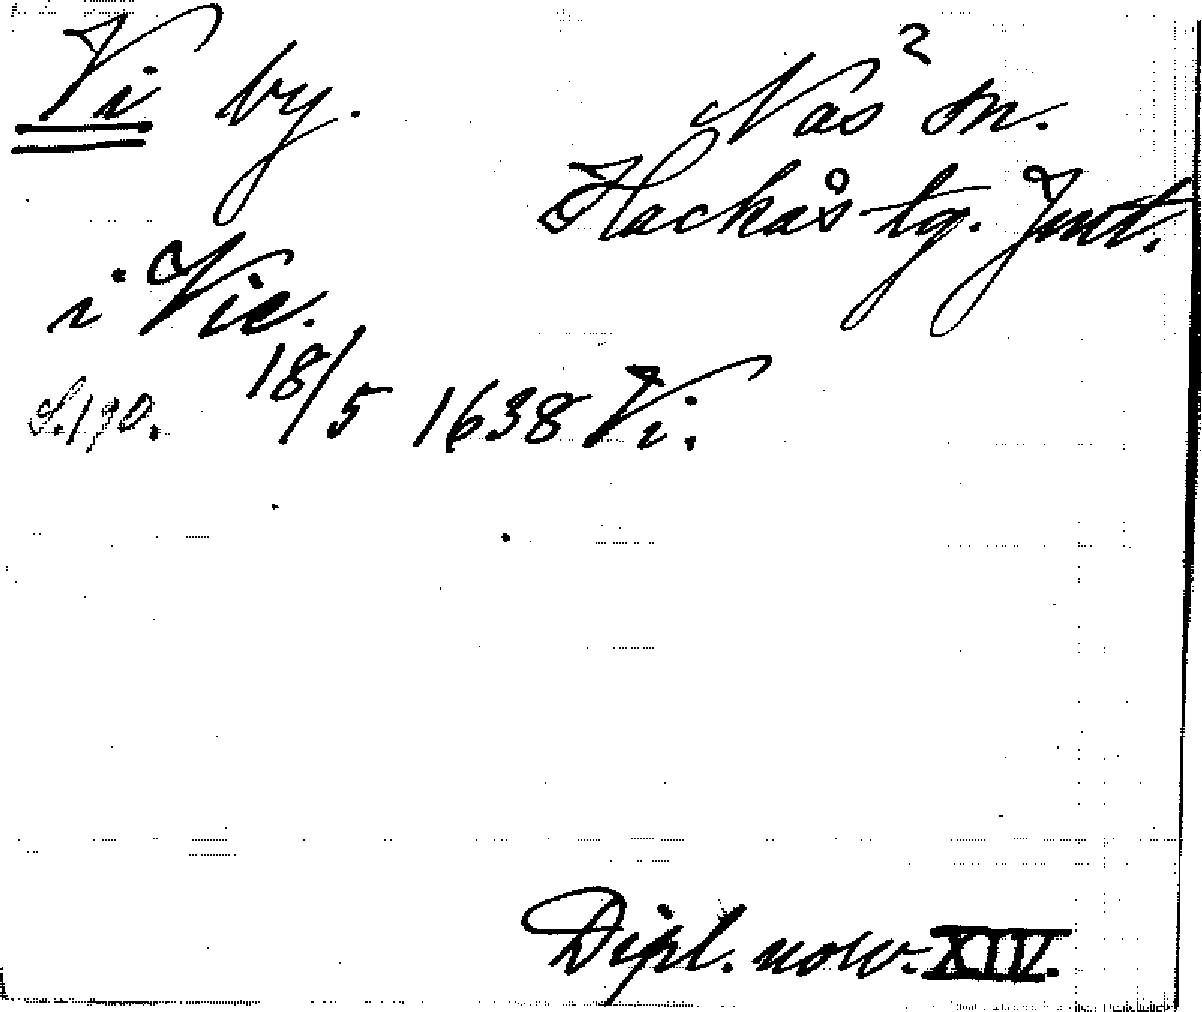 Vi by.
Näs sn.
Hackås tg. Jmt.
i Vie.
S. 190. 18/5 1638 Vi.
Dipl. norv. XIV.